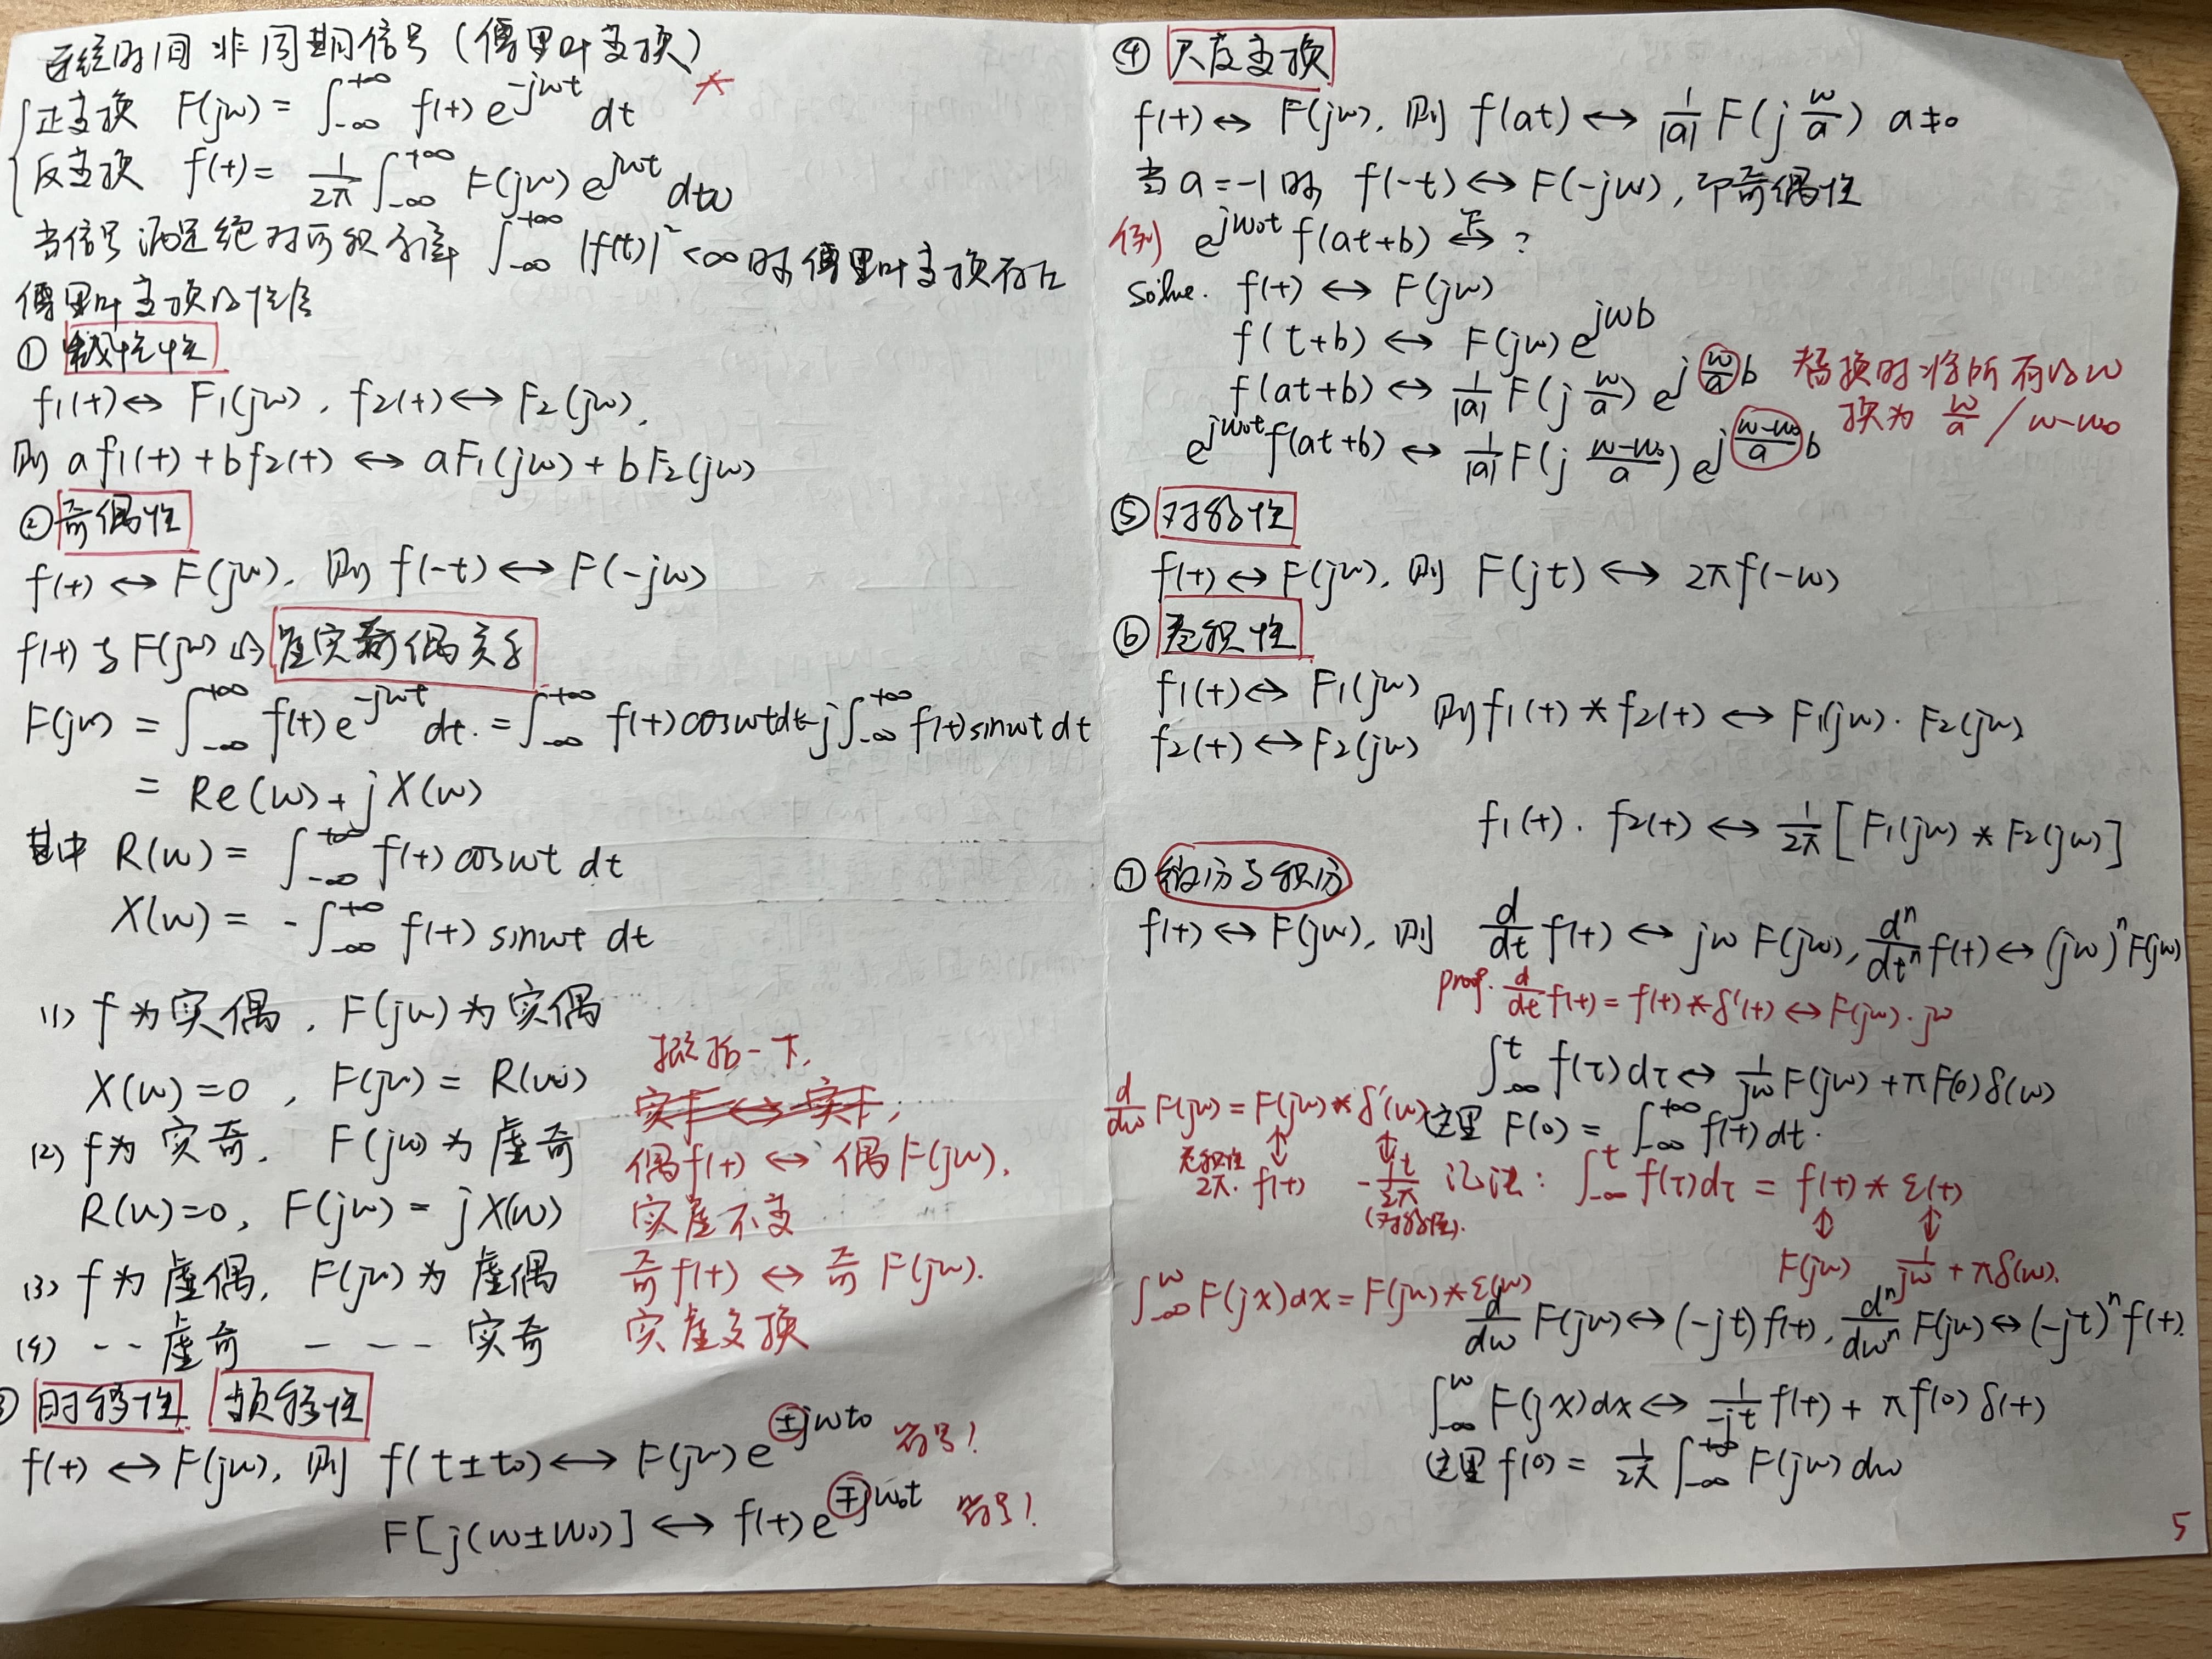 连续时间非周期信号(傅里叶变换)
正变换 F(jω) = ∫_{-∞}^{+∞} f(t) e^{-jωt} dt *
反变换 f(t) = 1/2π ∫_{-∞}^{+∞} F(jω) e^{jωt} dω
当信号满足绝对可积条件 ∫_{-∞}^{+∞} |f(t)|² <∞时傅里叶变换存在
傅里叶变换的性质
① 线性性
f1(t) ↔ F1(jω), f2(t) ↔ F2(jω),
则 a f1(t) + b f2(t) ↔ aF1(jω) + bF2(jω)
② 奇偶性
f(t) ↔ F(jω), 则 f(-t) ↔ F(-jω)
f(t) 与 F(jω) 的 虚实奇偶关系
F(jω) = ∫_{-∞}^{+∞} f(t) e^{-jωt} dt. = ∫_{-∞}^{+∞} f(t) cosωt dt - j∫_{-∞}^{+∞} f(t) sinωt dt
= Re(ω) + jX(ω)
其中 R(ω) = ∫_{-∞}^{+∞} f(t) cosωt dt
X(ω) = -∫_{-∞}^{+∞} f(t) sinωt dt
(1) f为实偶, F(jω)为实偶
X(ω)=0, F(jω) = R(ω)
(2) f为实奇, F(jω)为虚奇
R(ω)=0, F(jω) = jX(ω)
(3) f为虚偶, F(jω)为虚偶
(4) --虚奇 --- 实奇
概括一下,
实f ↔ 实F,
偶f(t) ↔ 偶F(jω).
实虚不变
奇f(t) ↔ 奇F(jω).
实虚交换
③ 时移性 频移性
f(t) ↔ F(jω), 则 f(t±t0) ↔ F(jω) e^{±jωt0} 符号!
F[j(ω±ω0)] ↔ f(t) e^{∓jω0t} 符号!
④ 尺度变换
f(t) ↔ F(jω), 则 f(at) ↔ 1/|a| F(j ω/a) a≠0
当 a=-1时 f(-t) ↔ F(-jω), 即奇偶性
例 e^{jω0t} f(at+b) ↔^F ?
Solve. f(t) ↔ F(jω)
f(t+b) ↔ F(jω) e^{jωb}
f(at+b) ↔ 1/|a| F(j ω/a) e^{j ω/a b} 替换时将所有的ω
换为 ω/a / ω-ω0
e^{jω0t} f(at+b) ↔ 1/|a| F(j (ω-ω0)/a) e^{j (ω-ω0)/a b}
⑤ 对称性
f(t) ↔ F(jω), 则 F(jt) ↔ 2πf(-ω)
⑥ 卷积性
f1(t) ↔ F1(jω)
f2(t) ↔ F2(jω)
则 f1(t) * f2(t) ↔ F1(jω) · F2(jω)
f1(t) · f2(t) ↔ 1/2π [F1(jω) * F2(jω)]
⑦ 微分与积分
f(t) ↔ F(jω), 则 d/dt f(t) ↔ jω F(jω), d^n/dt^n f(t) ↔ (jω)^n F(jω)
proof. d/dt f(t) = f(t) * δ'(t) ↔ F(jω) · jω
∫_{-∞}^{t} f(τ)dτ ↔ 1/jω F(jω) + πF(0)δ(ω)
这里 F(0) = ∫_{-∞}^{+∞} f(t) dt.
d/dω F(jω) = F(jω) * δ'(ω)
卷积性 2π· f(t) -jt/2π (对称性).
记法: ∫_{-∞}^{t} f(τ)dτ = f(t) * ε(t)
F(jω) 1/jω + πδ(ω).
∫_{-∞}^{ω} F(jx)dx = F(jω) * ε(ω)
d/dω F(jω) ↔ (-jt) f(t), d^n/dω^n F(jω) ↔ (-jt)^n f(t).
∫_{-∞}^{ω} F(jx)dx ↔ 1/-jt f(t) + πf(0)δ(t)
这里 f(0) = 1/2π ∫_{-∞}^{+∞} F(jω) dω
5